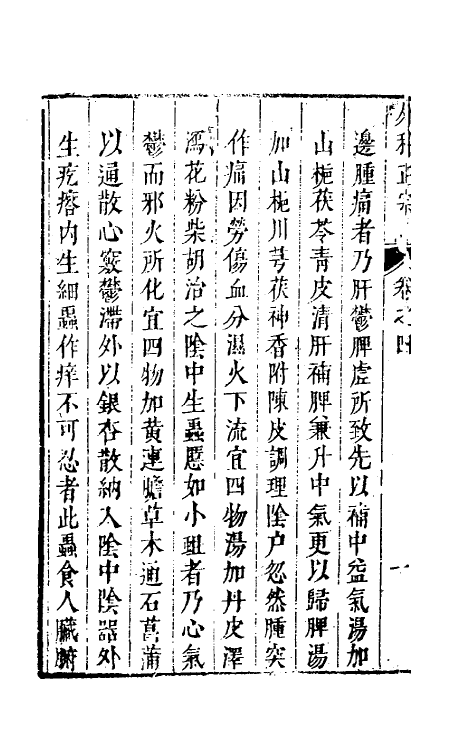 外科正宗 卷之四 一
邊腫痛者乃肝鬱脾虛所致先以補中益氣湯加
山梔茯苓青皮清肝補脾兼升中氣更以歸脾湯
加山梔川芎茯神香附陳皮調理陰户忽然腫突
作痛因勞傷血分濕火下流宜四物湯加丹皮澤
瀉花粉柴胡治之陰中生䘌𧏾如小蛆者乃心氣
鬱而邪火所化宜四物加黄連膽草木通石菖蒲
以通散心竅鬱滯外以銀杏散納入陰中陰器外
生疙瘩内生細蟲作痒不可忍者此蟲食人臟腑